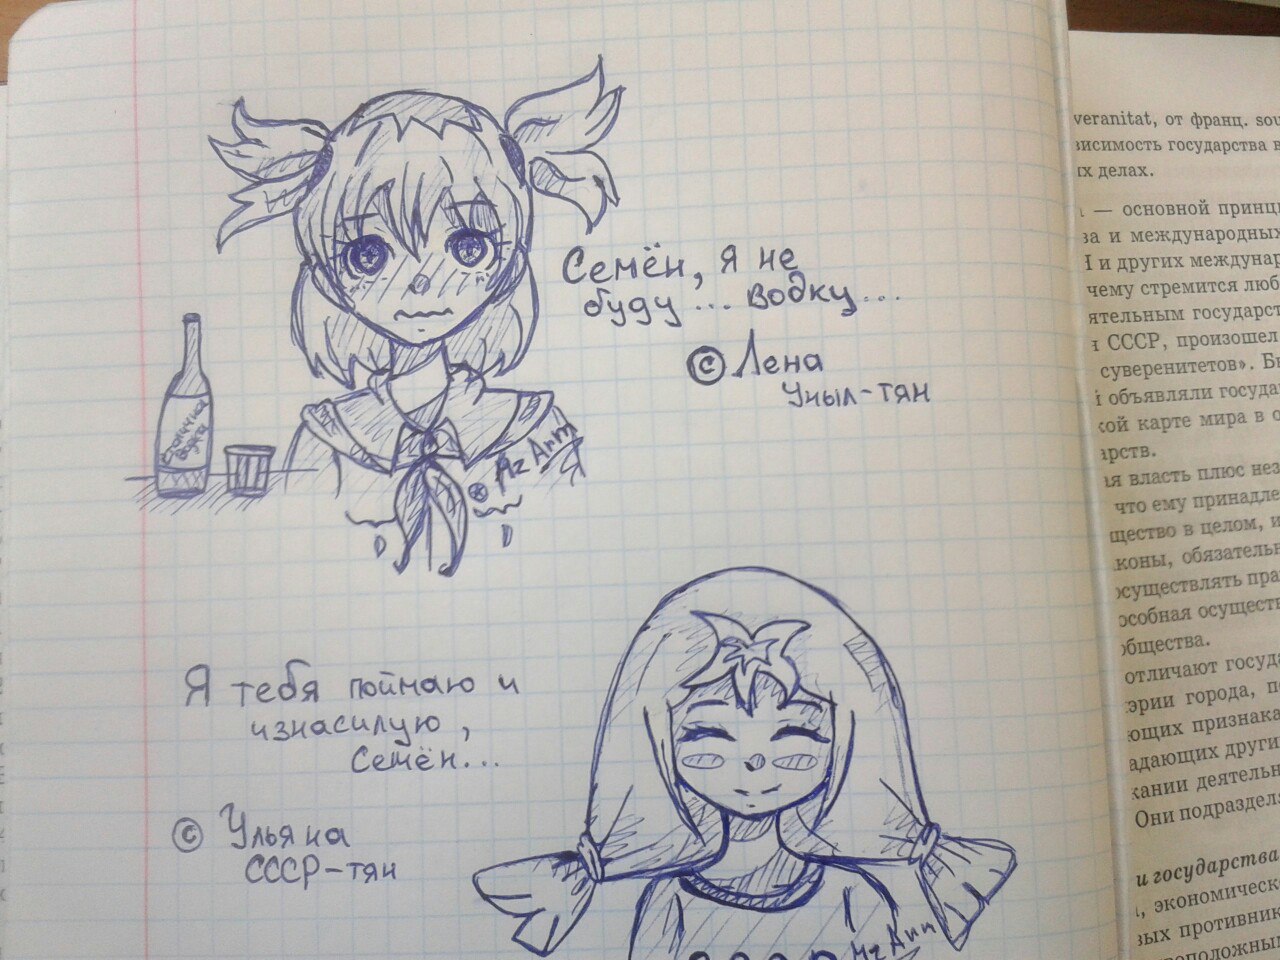 Семён, я не
буду... водку...
© Лена
Уныл-тян
водка
Mz Ann
Я тебя поймаю и
изнасилую,
Семён...
© Ульяна
СССР-тян
СССР
Mz Ann
veranitat, от франц. sou
висимость государства в
их делах.
— основной принци
ва и международных
I и других междунар
чему стремится люб
ятельным государст
СССР, произошел
суверенитетов». Б
объявляли госуда
кой карте мира в о
арств.
ая власть плюс нез
что ему принадле
щество в целом, и
коны, обязательн
осуществлять пра
особная осущест
общества.
отличают госуда
ории города, п
ющих признака
адающих други
кании деятельн
Они подраздел
и государства
, экономическ
вых противник
воположным